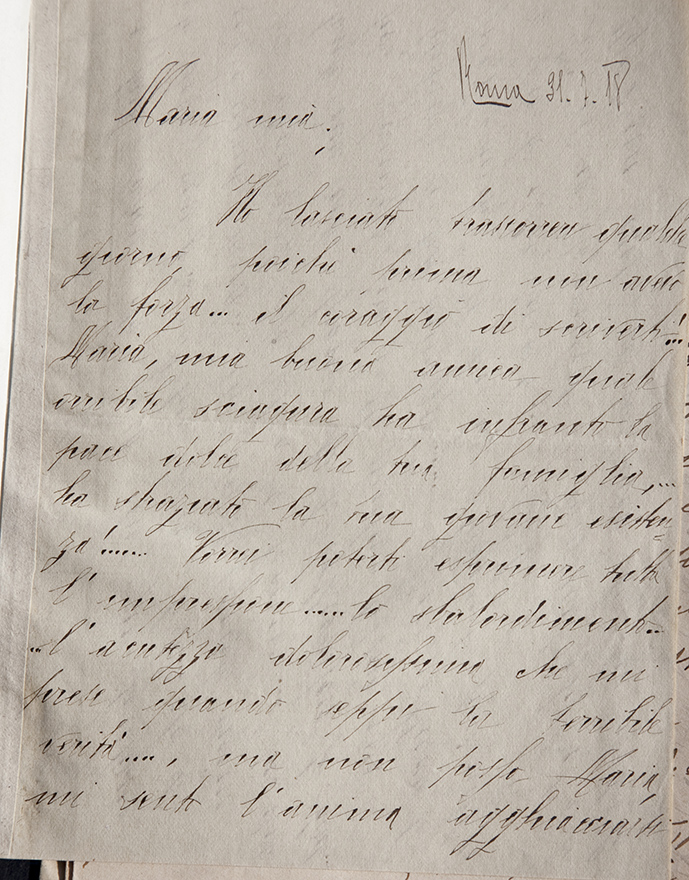 Roma 31.7.18
Maria mia,
Ho lasciato trascorrere qualche
giorno, poichè prima non avevo
la forza... il coraggio di scriverti!...
Maria, mia buona amica quale
orribile sciagura ha infranto la
pace dolce della tua famiglia,...
ha straziato la tua giovane esisten
za!..... Vorrei poterti esprimere tutta
l'impressione......lo sbalordimento...
...l' dolorosissima che mi
prese quando seppi la terribile
verità'...., ma non posso Maria,
mi sento l'anima agghiacciarsi